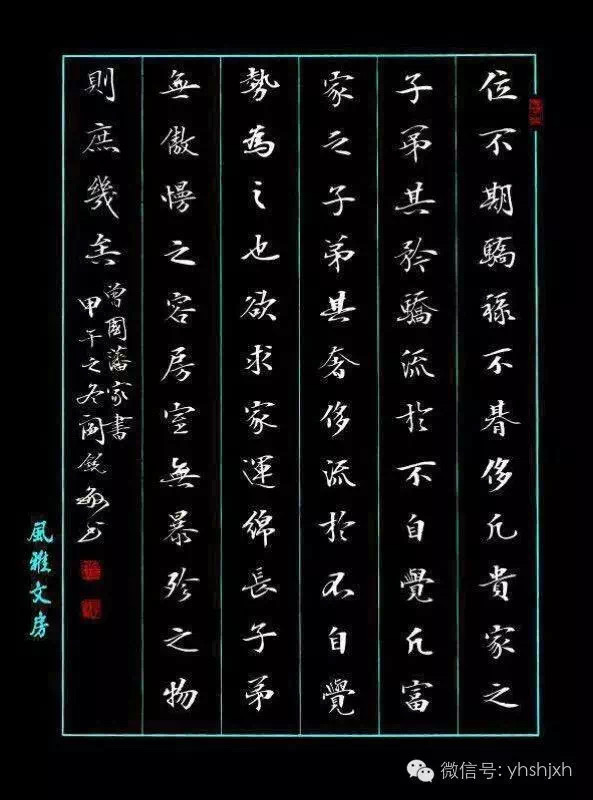 位不期驕祿不朞侈凡貴家之
子弟其矜驕流於不自覺凡富
家之子弟其奢侈流於不自覺
勢為之也欲求家運綿長子弟
無傲慢之容房室無暴殄之物
則庶幾矣
曾國藩家書
甲午之冬
風雅文房
微信号: yhshjxh